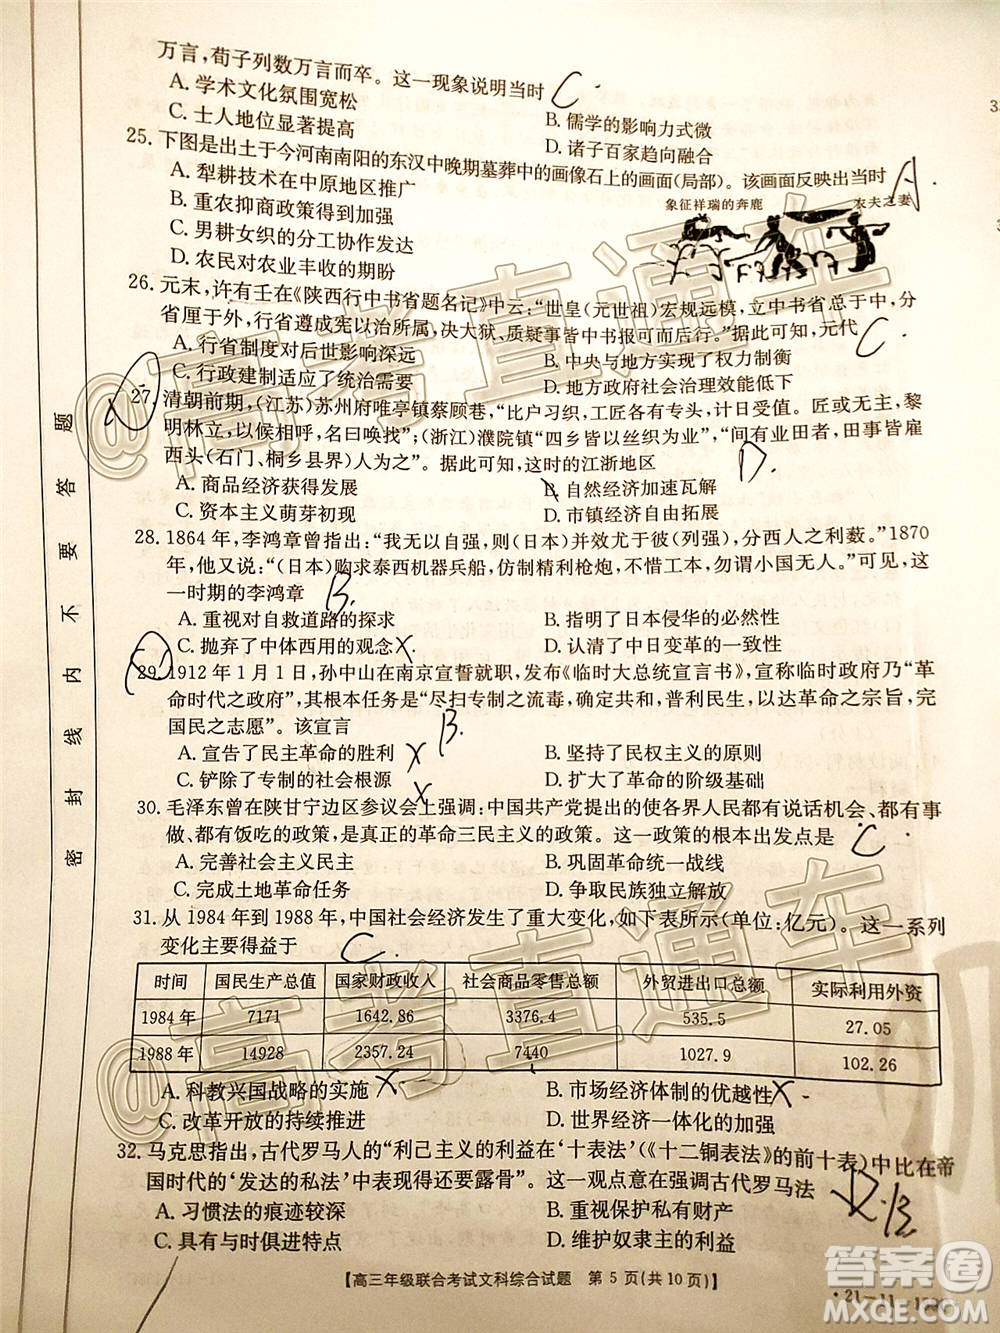 万言,荀子列数万言而卒。这一现象说明当时 C.
A. 学术文化氛围宽松
B. 儒学的影响力式微
C. 士人地位显著提高
D. 诸子百家趋向融合
25. 下图是出土于今河南南阳的东汉中晚期墓葬中的画像石上的画面(局部)。该画面反映出当时 A.
A. 犁耕技术在中原地区推广
象征祥瑞的奔鹿 农夫之妻
B. 重农抑商政策得到加强
C. 男耕女织的分工协作发达
D. 农民对农业丰收的期盼
26. 元末,许有壬在《陕西行中书省题名记》中云:“世皇(元世祖)宏规远模,立中书省总于中,分
省厘于外,行省遵成宪以治所属,决大狱、质疑事皆中书报可而后行。”据此可知,元代 C.
A. 行省制度对后世影响深远
B. 中央与地方实现了权力制衡
C. 行政建制适应了统治需要
D. 地方政府社会治理效能低下
27. 清朝前期,(江苏)苏州府唯亭镇蔡顾巷,“比户习织,工匠各有专能,计日受值。匠或无主,黎
明林立,以候相呼,名曰唤找”;(浙江)濮院镇“四乡皆以丝织为业”,“间有业田者,田事皆雇
西头(石门、桐乡县界)人为之”。据此可知,这时的江浙地区 D.
A. 商品经济获得发展
B. 自然经济加速瓦解
C. 资本主义萌芽初现
D. 市镇经济自由拓展
28. 1864 年,李鸿章曾指出:“我无以自强,则(日本)并效尤于彼(列强),分西人之利薮。”1870
年,他又说:“(日本)购求泰西机器兵船,仿制精利枪炮,不惜工本,勿谓小国无人。”可见,这
一时期的李鸿章 B.
A. 重视对自救道路的探求
B. 指明了日本侵华的必然性
C. 抛弃了中体西用的观念 X.
D. 认清了中日变革的一致性
29. 1912 年 1 月 1 日,孙中山在南京宣誓就职,发布《临时大总统宣言书》,宣称临时政府乃“革
命时代之政府”,其根本任务是:“尽扫专制之流毒,确定共和,普利民生,以达革命之宗旨,完
国民之志愿”。该宣言 B.
A. 宣告了民主革命的胜利 X
B. 坚持了民权主义的原则
C. 铲除了专制的社会根源 X
D. 扩大了革命的阶级基础
30. 毛泽东曾在陕甘宁边区参议会上强调:中国共产党提出的使各界人民都有说话机会、都有事
做、都有饭吃的政策,就是真正的革命三民主义的政策。这一政策的根本出发点是 C.
A. 完善社会主义民主
B. 巩固革命统一战线
C. 完成土地革命任务
D. 争取民族独立解放
31. 从 1984 年到 1988 年,中国社会经济发生了重大变化,如下表所示(单位:亿元)。这一系列
变化主要得益于 C.
时间 国民生产总值 国家财政收入 社会商品零售总额 外贸进出口总额 实际利用外资
1984 年 7171 1642.86 3376.4 535.5 27.05
1988 年 14928 2357.24 7440 1027.9 102.26
A. 科教兴国战略的实施 X
B. 市场经济体制的优越性 X
C. 改革开放的持续推进
D. 世界经济一体化的加强
32. 马克思指出,古代罗马人的“利己主义的利益在‘十表法’(《十二铜表法》的前十表)中比在帝
国时代的‘发达的私法’中表现得还要露骨”。这一观点意在强调古代罗马法
A. 习惯法的痕迹较深
B. 重视保护私有财产
C. 具有与时俱进特点
D. 维护奴隶主的利益
【高三年级联合考试文科综合试题 第 5 页(共 10 页)】
密 封 线 内 不 要 答 题
@高考直通车
@高考直通车
答案圈
MXQE.COM